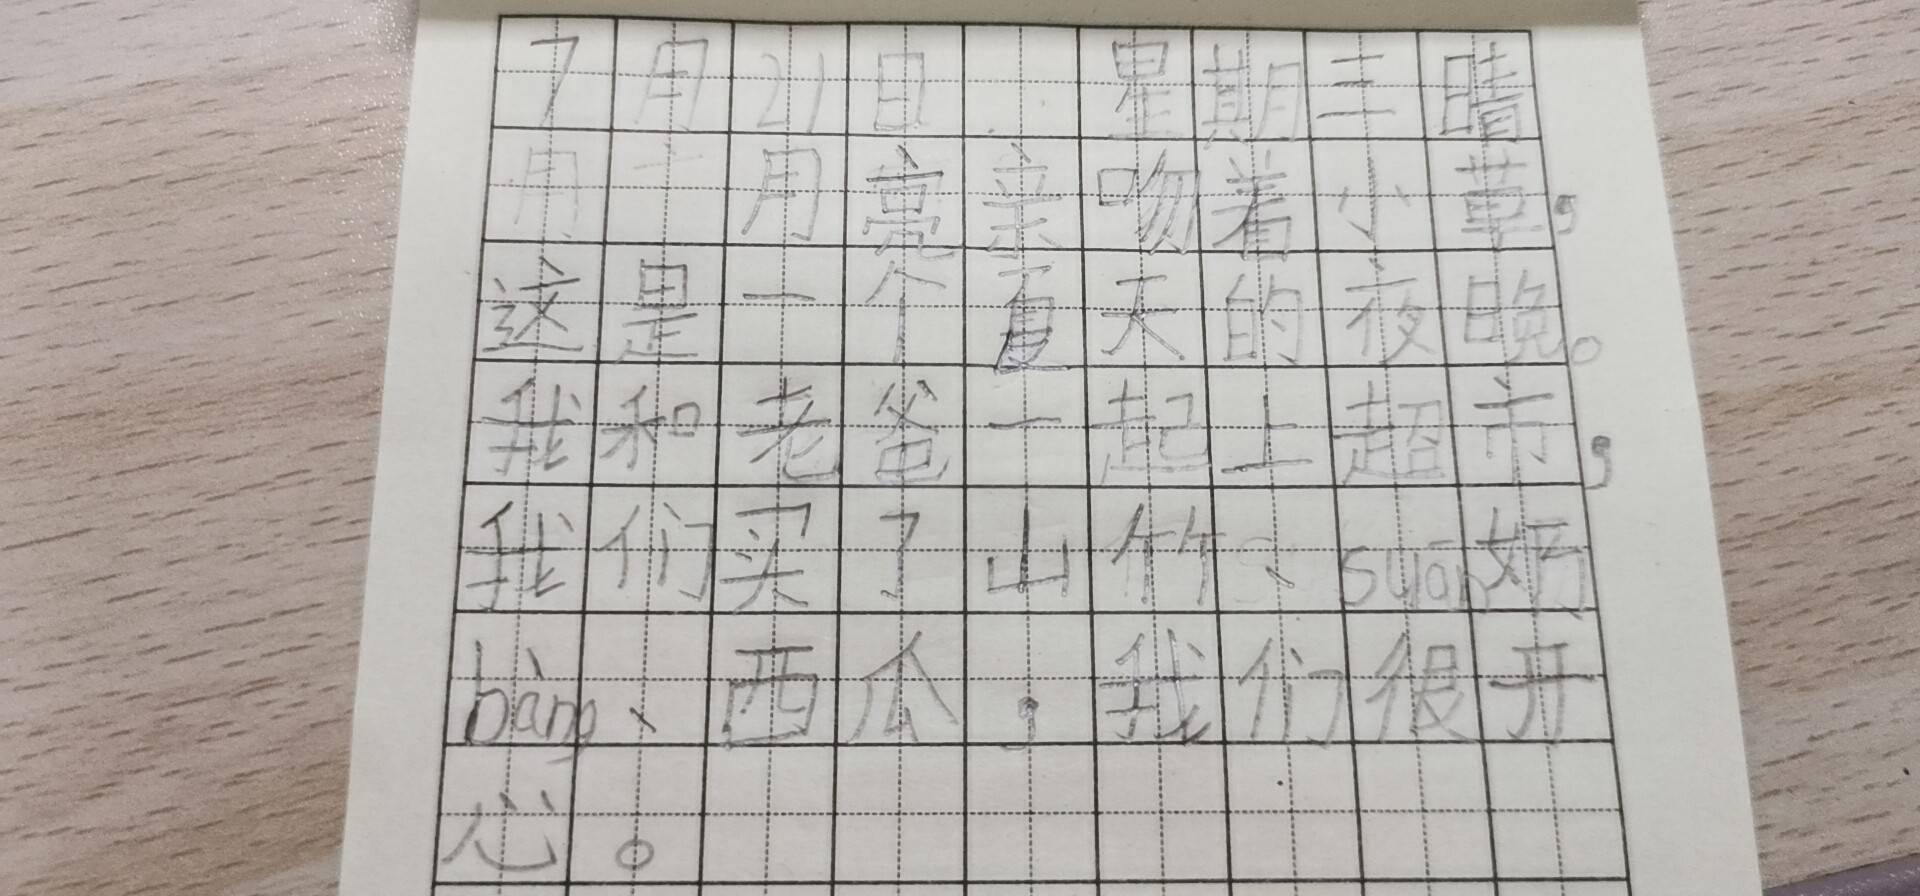 7月21日 星期三晴
月亮亲吻着小草,
这是一个夏天的夜晚。
我和老爸一起上超市,
我们买了山竹、suān奶
bàng、西瓜,我们很开
心。